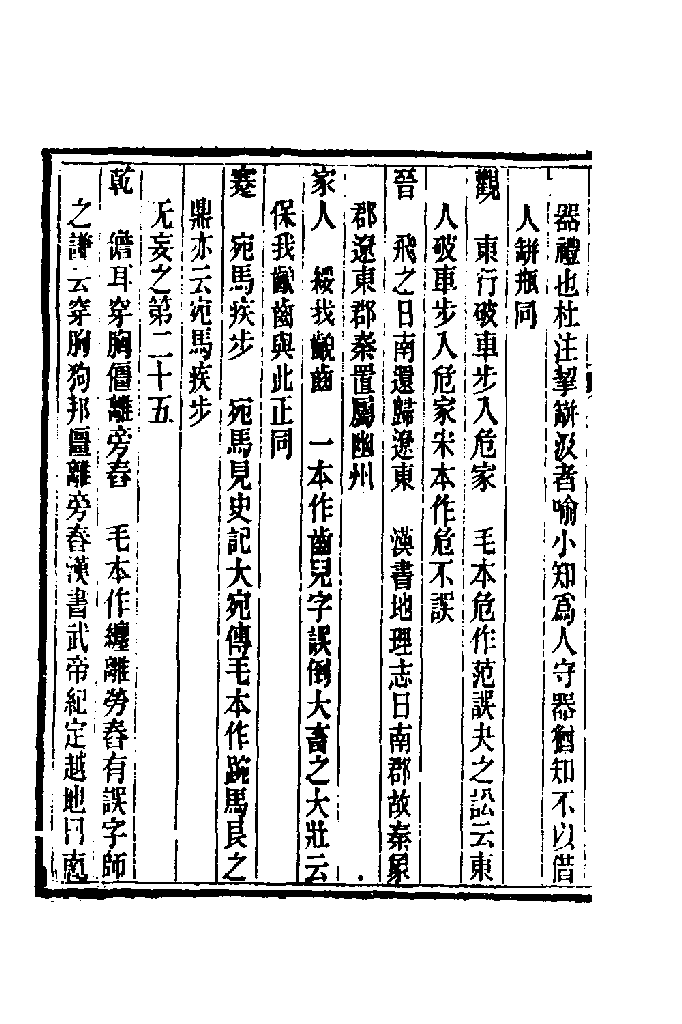 器禮也杜注挈缾汲者喻小知爲人守器猶知不以借
人缾瓶同
觀　東行破車步入危家　毛本危作范誤夬之訟云東
人破車步入危家宋本作危不誤
晉　飛之日南還歸遼東　漢書地理志日南郡故秦象
郡遼東郡秦置屬幽州
家人　綏我齯齒　一本作齒兒字誤倒大畜之大壯云
保我齯齒與此正同
蹇　宛馬疾步　宛馬見史記大宛傳毛本作踠馬艮之
鼎亦云宛馬疾步
无妄之第二十五
乾　儋耳穿胸僵離旁舂　毛本作纏離勞舂有誤字師
之謙云穿胸狗邦僵離旁舂漢書武帝紀定越地日南